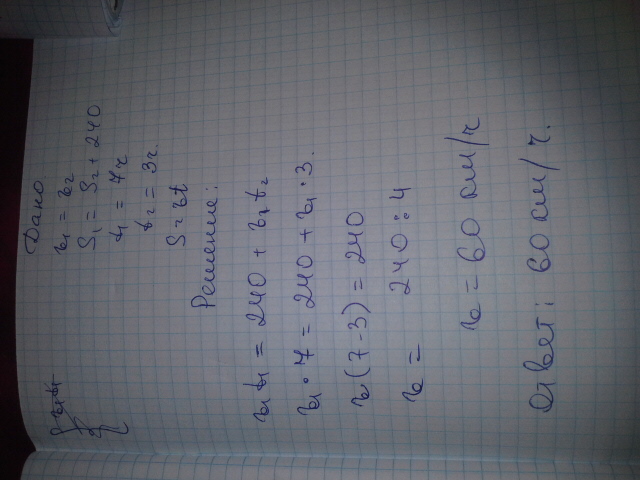 Дано
v₁ = v₂
S₁ = S₂ + 240
t₁ = 7ч
t₂ = 3ч
S = vt
Решение:
v₁t₁ = 240 + v₂t₂
v₁ · 7 = 240 + v₁ · 3.
v(7-3) = 240
v = 240 : 4
v = 60 км/ч
Ответ: 60 км/ч.